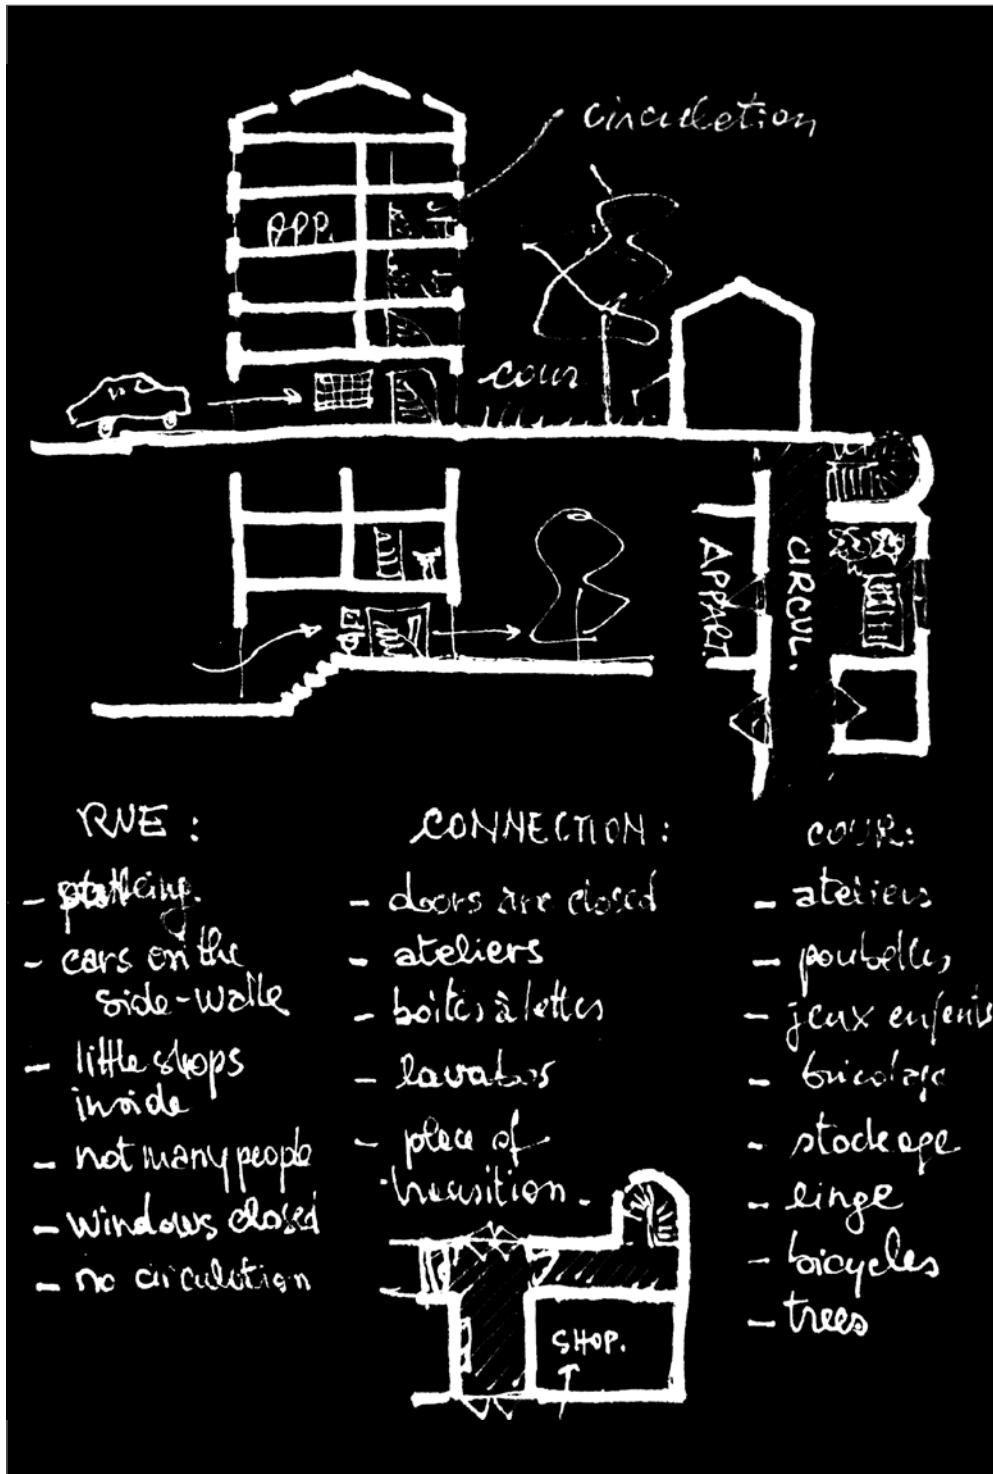 circulation
APP.
cour
APPART.
CIRCUL.
RUE :
- parking.
- cars on the
side-walk
- little shops
inside
- not many people
- windows closed
- no circulation
CONNECTION :
- doors are closed
- ateliers
- boîtes à lettres
- lavabos
- place of
transition.
SHOP.
COUR:
- ateliers
- poubelles
- jeux enfants
- bricolage
- stockage
- linge
- bicycles
- trees